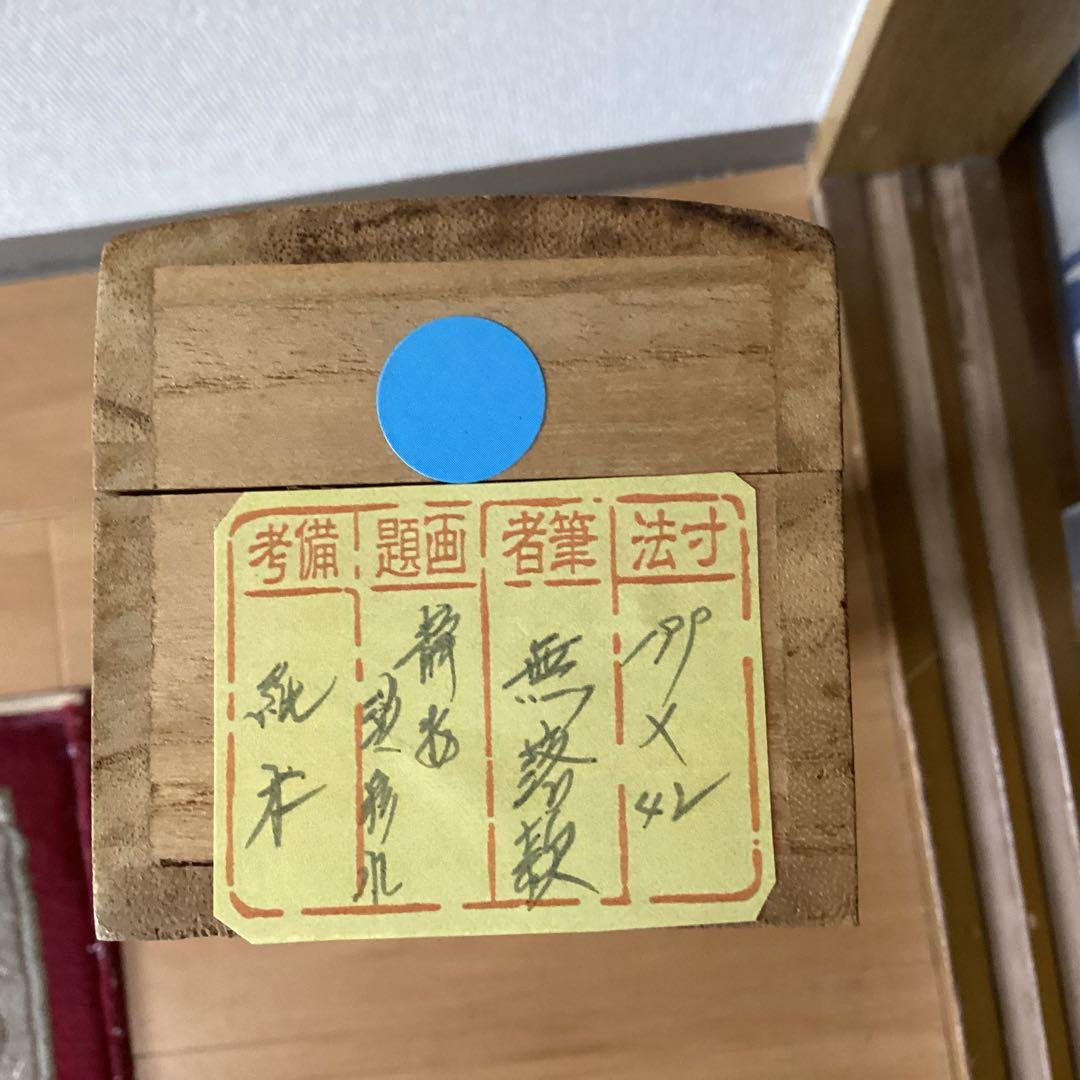 寸法
199×42
筆者
無落款
画題
備考
紙本